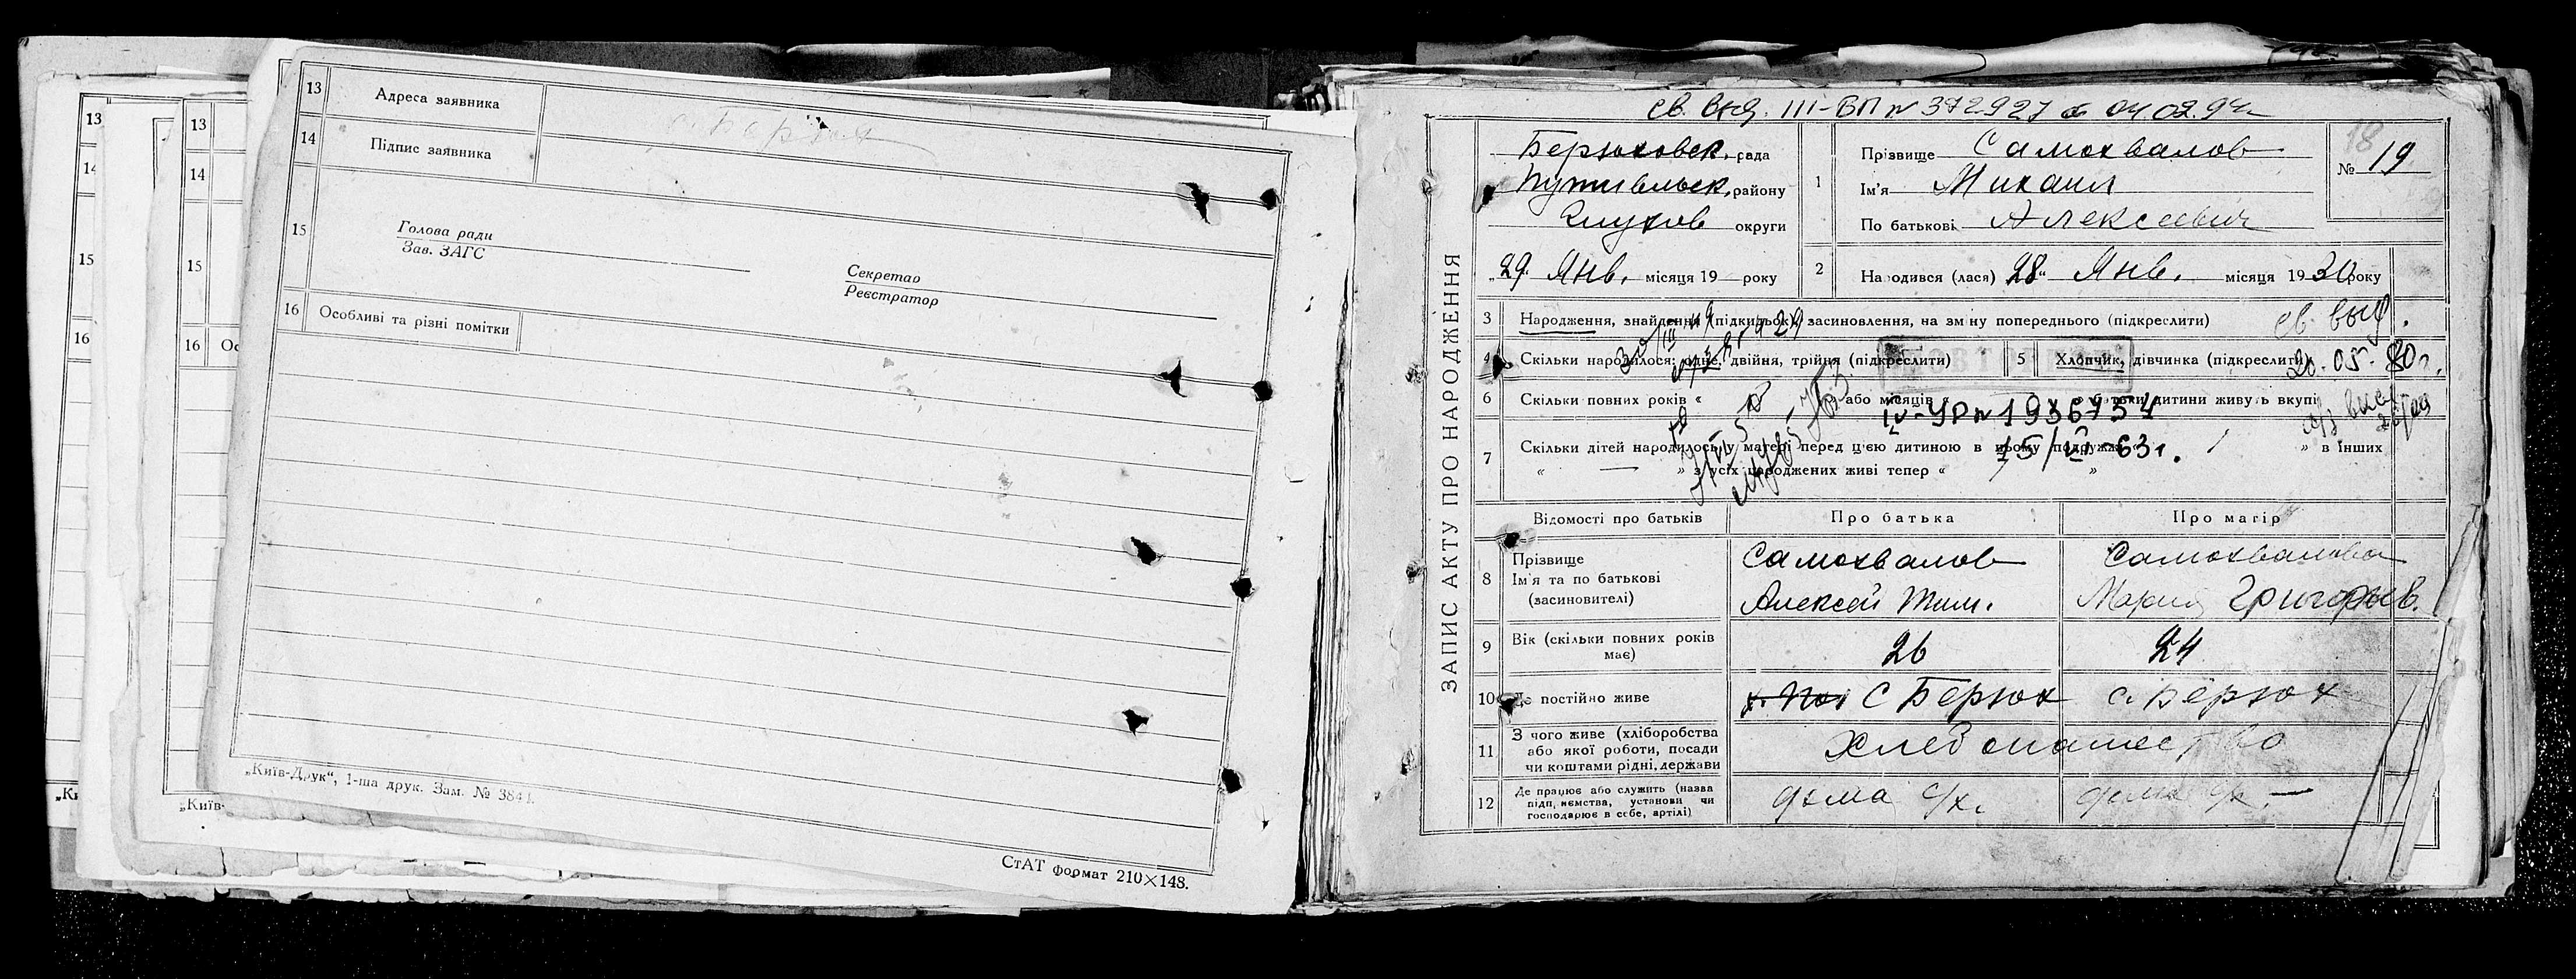 13
14
15
16
„Ки
13
14
15
16 Ос
„Київ-
13 Адреса заявника
с. Берюх
14 Підпис заявника
15 Голова ради
Зав. ЗАГС
Секретар
Реєстратор
16 Особливі та різні помітки
„Київ-Друк“, 1-ша друк. Зам. № 3841.
СтАТ формат 210×148.
св. выд. III-ВП № 372927 от 04.02.94г
ЗАПИС АКТУ ПРО НАРОДЖЕННЯ
Берюховск. рада
Путивльск. району
Глухов округи
„29. Янв. місяця 19 року
1 Прізвище Самохвалов
Ім'я Михаил
По батькові Алексеевич
18
№ 19
2 Народився (лася) 28 „ Янв. місяця 1930 року
3 Народження, знайдення (підкидьок) засиновлення, на зміну попереднього (підкреслити)
св. выд.
4 Скільки народилося: одне, двійня, трійня (підкреслити)
5 Хлопчик, дівчинка (підкреслити)
20.05.80г.
6 Скільки повних років « » або місяців « » батьки дитини живуть вкупі
IV-УР № 1936734
7 Скільки дітей народилось у матері перед цією дитиною в цьому подружжі / » в інших
15/VI-63г.
« — » з усіх народжених живі тепер « »
Відомості про батьків Про батька Про матір
8 Прізвище
Ім'я та по батькові
(засиновителі)
Самохвалов
Алексей Тим.
Самохвалова
Мария Григорьев.
9 Вік (скільки повних років має) 26 24
10 Де постійно живе С Берюх с. Берюх
11 З чого живе (хліборобства
або якої роботи, посади
чи коштами рідні, держави
Хлебопашество
12 Де працює або служить (назва
підприємства, установи чи
господарює в себе, артілі)
дома с/х. дома с/х. —